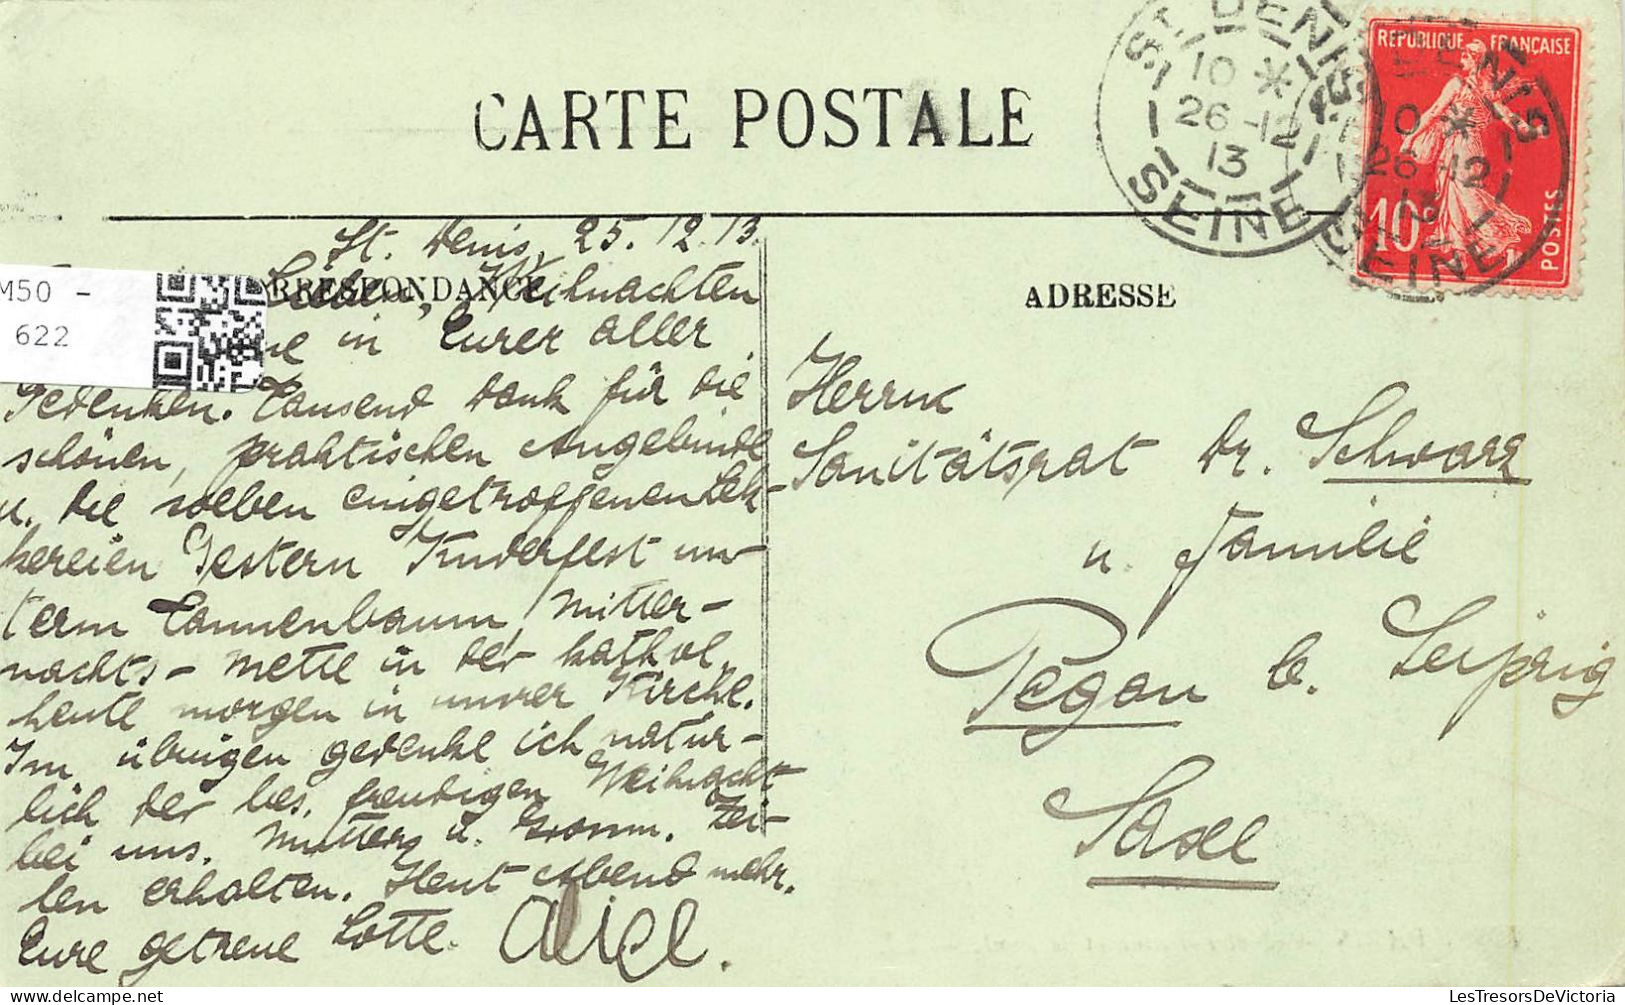 CARTE POSTALE
ST DENIS
10 *
26-12
13
SEINE
ST DENIS
10 *
26-12
13
SEINE
REPUBLIQUE FRANÇAISE
10
POSTES
M50 -
622
RRESPONDANCE
ADRESSE
St. Denis, 25.12.13.
Weihnachten
in Eurer aller
Gedenken. Tausend Dank für die
schönen, praktischen Angebinde
u. die soeben eingetroffenen Lek-
kereien Gestern Kinderfest un-
term Tannenbaum, Mitter-
nachts-Mette in der kathol.
heute morgen in unsrer Kirche.
Im übrigen gedenke ich natür-
lich der bes. freudigen Weihnacht
bei uns. Mutters u. Grossm. Zei-
len erhalten. Heut Abend mehr.
Eure getreue Lotte.
Herrn
Sanitätsrat Dr. Schwarz
u. Familie
Pegau b. Leipzig
Saxe
LesTresorsDeVictoria